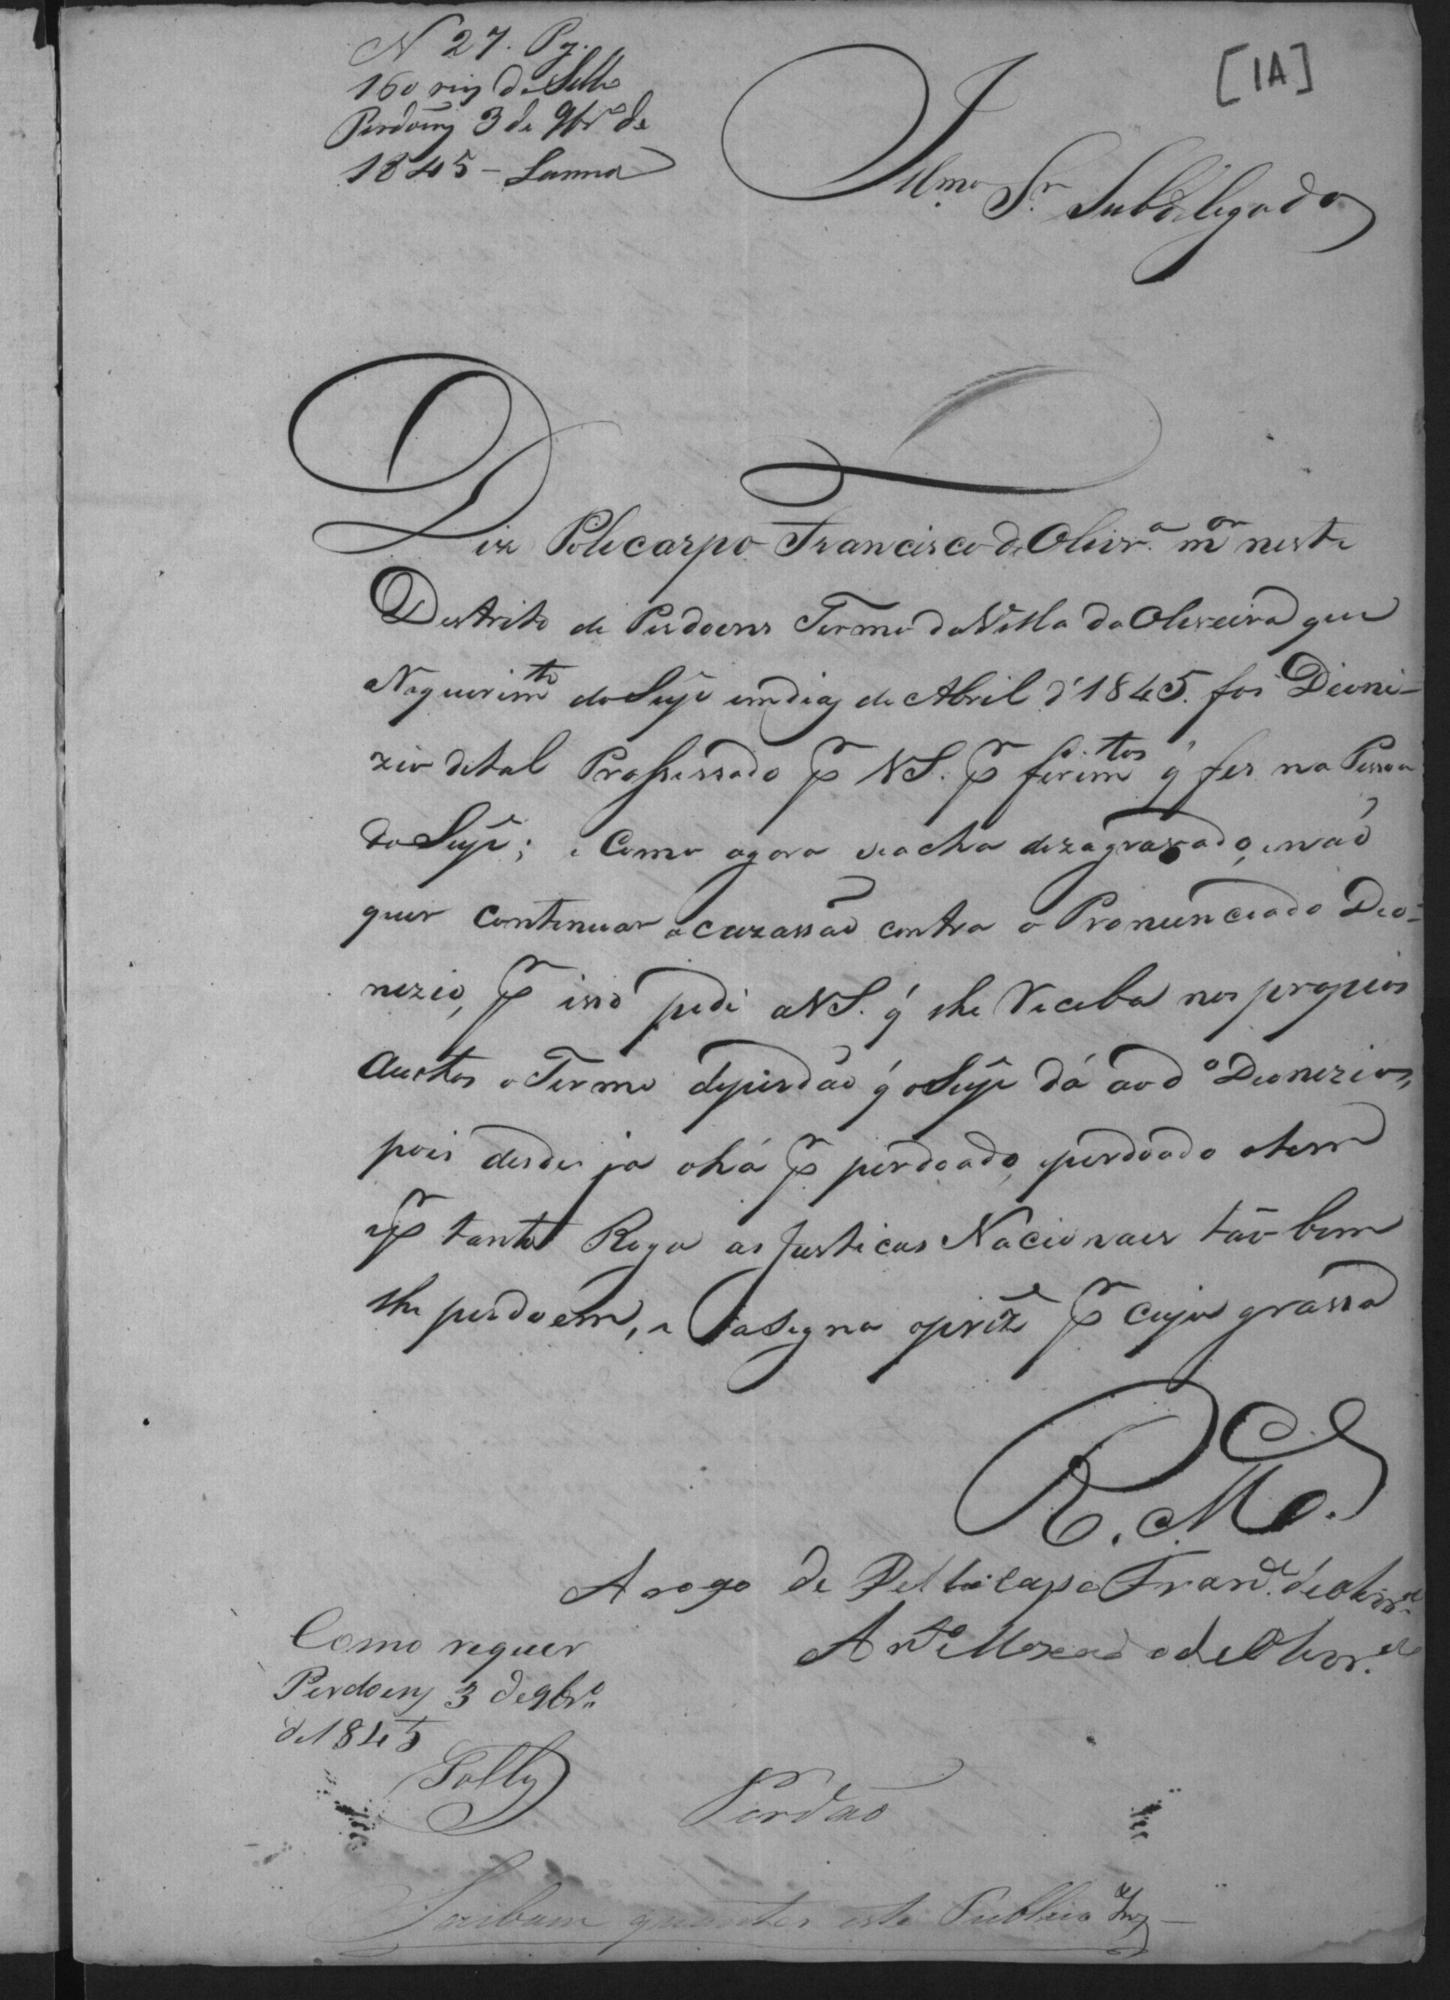 N 27. Pg.
160 reis de Sello
Perdoens 3 de 9br.º de
1845 - Lanna
[1A]
Illmo. Sr. Subdelegado
Diz Policarpo Francisco de Olivr.ª m.or neste
Destrito de Perdoens Termo da Villa da Oliveira que
a Requerim.to do Supe em dias de Abril d'1845. foi Dioni-
zio de tal Prossessado pr VS. pr ferim.tos q' fes na Pessoa
do Supe; e Como agora se acha dezagravado, e não
quer continuar acuzassão contra o Pronunciado Dio-
nezio, pr isso pede a VS. q' lhe Receba nos propios
Auctos o Termo de perdão q' o Supe dá ao d.º Dionezio,
pois desde ja o há pr perdoado, e perdoado o tem
e pr tanto Roga as Justicas Nacionaes tão bem
lhe perdoem, e asegna o prez.e pr cuja grassa
E.
R. M.ce.
A rogo de Pollicarpo Fran.co de Olivr.ª
Ant.º Machado de Olivr.ª
Como requer
Perdoens 3 de 9br.º
de 1845
Perdão
Saibam quantos este Publico